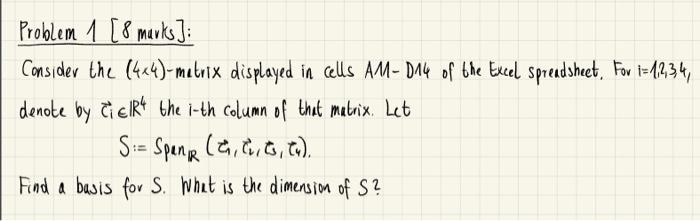 Problem 1 [8 marks]:
Consider the (4×4)-matrix displayed in cells A11-D14 of the Excel spreadsheet. For i=1,2,3,4,
denote by c⃗i∈ℝ⁴ the i-th column of that matrix. Let
S:= Spanℝ (c⃗1, c⃗2, c⃗3, c⃗4).
Find a basis for S. What is the dimension of S?